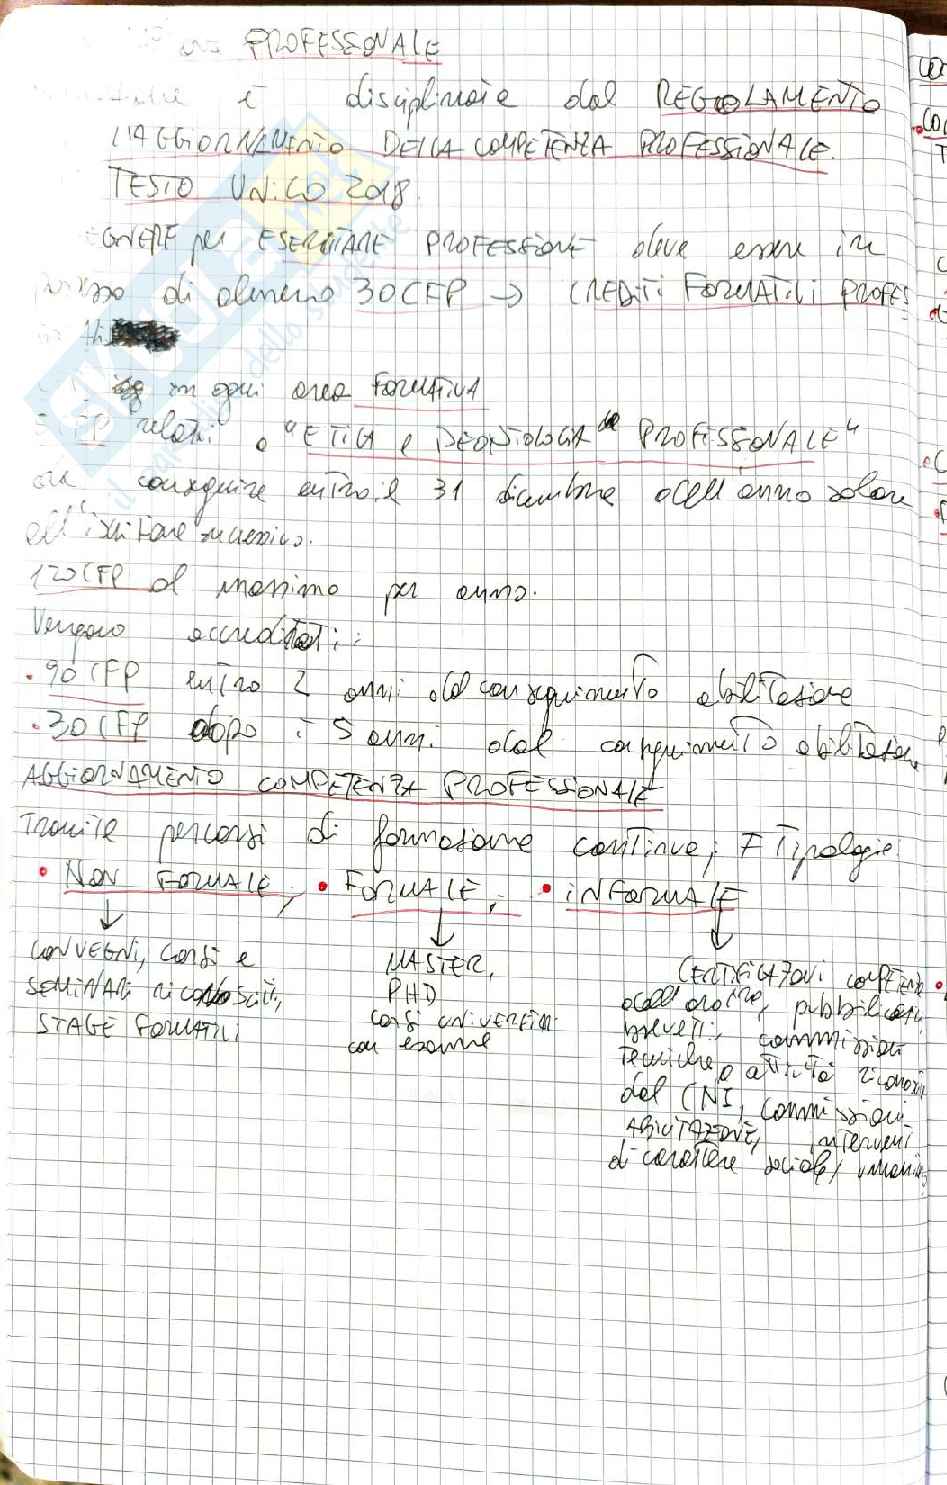 PROFESSIONALE
è disciplinare dal REGOLAMENTO
L'AGGIORNAMENTO DELLA COMPETENZA PROFESSIONALE.
TESTO UNICO 2018
per ESERCITARE PROFESSIONE deve essere in
di almeno 30 CFP → CREDITI FORMATIVI PROFES
in ogni area FORMATIVA
CFP relativi a "ETICA e DEONTOLOGIA PROFESSIONALE"
conseguire entro il 31 dicembre dell'anno solare
all'iscrizione successivo.
120 CFP al massimo per anno.
Vengono accreditati:
• 90 CFP entro 2 anni dal conseguimento abilitazione
• 30 CFP dopo i 5 anni dal conseguimento abilitazion
AGGIORNAMENTO COMPETENZA PROFESSIONALE
Tramite percorsi di formazione continua; 7 Tipologie:
• NON FORMALE, • FORMALE, • INFORMALE
CONVEGNI, Corsi e
SEMINARI riconosciuti,
STAGE FORMATIVI
MASTER,
PHD
corsi universitari
con esame
CERTIFICAZIONI competenze
dall'ordine, pubblicazioni
brevetti, commissioni
Tecniche o attività riconosciu
dal CNI, commissioni
ABILITAZIONE, interventi
di carattere sociale/